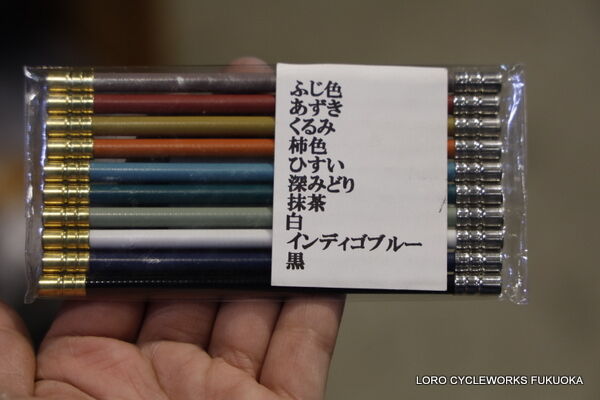 ふじ色
あずき
くるみ
柿色
ひすい
深みどり
抹茶
白
インディゴブルー
黒
LORO CYCLEWORKS FUKUOKA